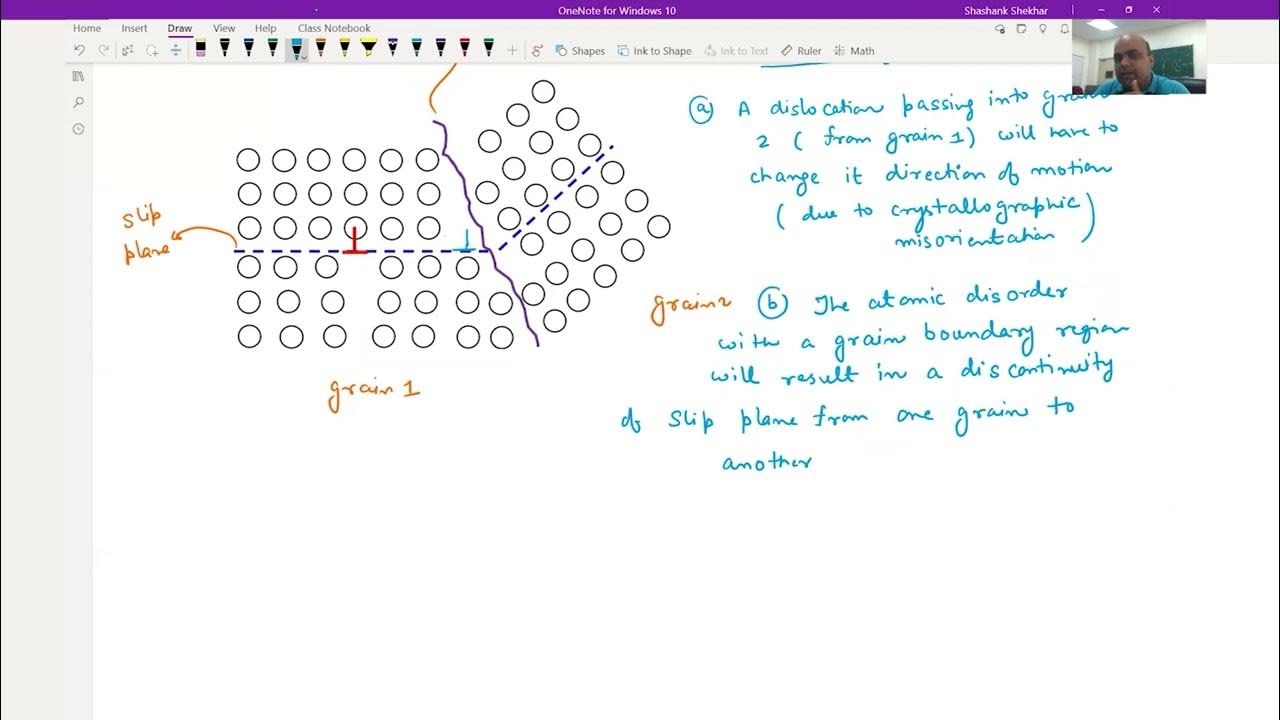 OneNote for Windows 10
Shashank Shekhar
Home Insert Draw View Help Class Notebook
Shapes Ink to Shape Ink to Text Ruler Math
(a) A dislocation passing into
2 (from grain 1) will have to
change it direction of motion
(due to crystallographic
misorientation)
slip
plane
grain 2 (b) The atomic disorder
with a grain boundary region
will result in a discontinuity
of slip plane from one grain to
another
grain 1